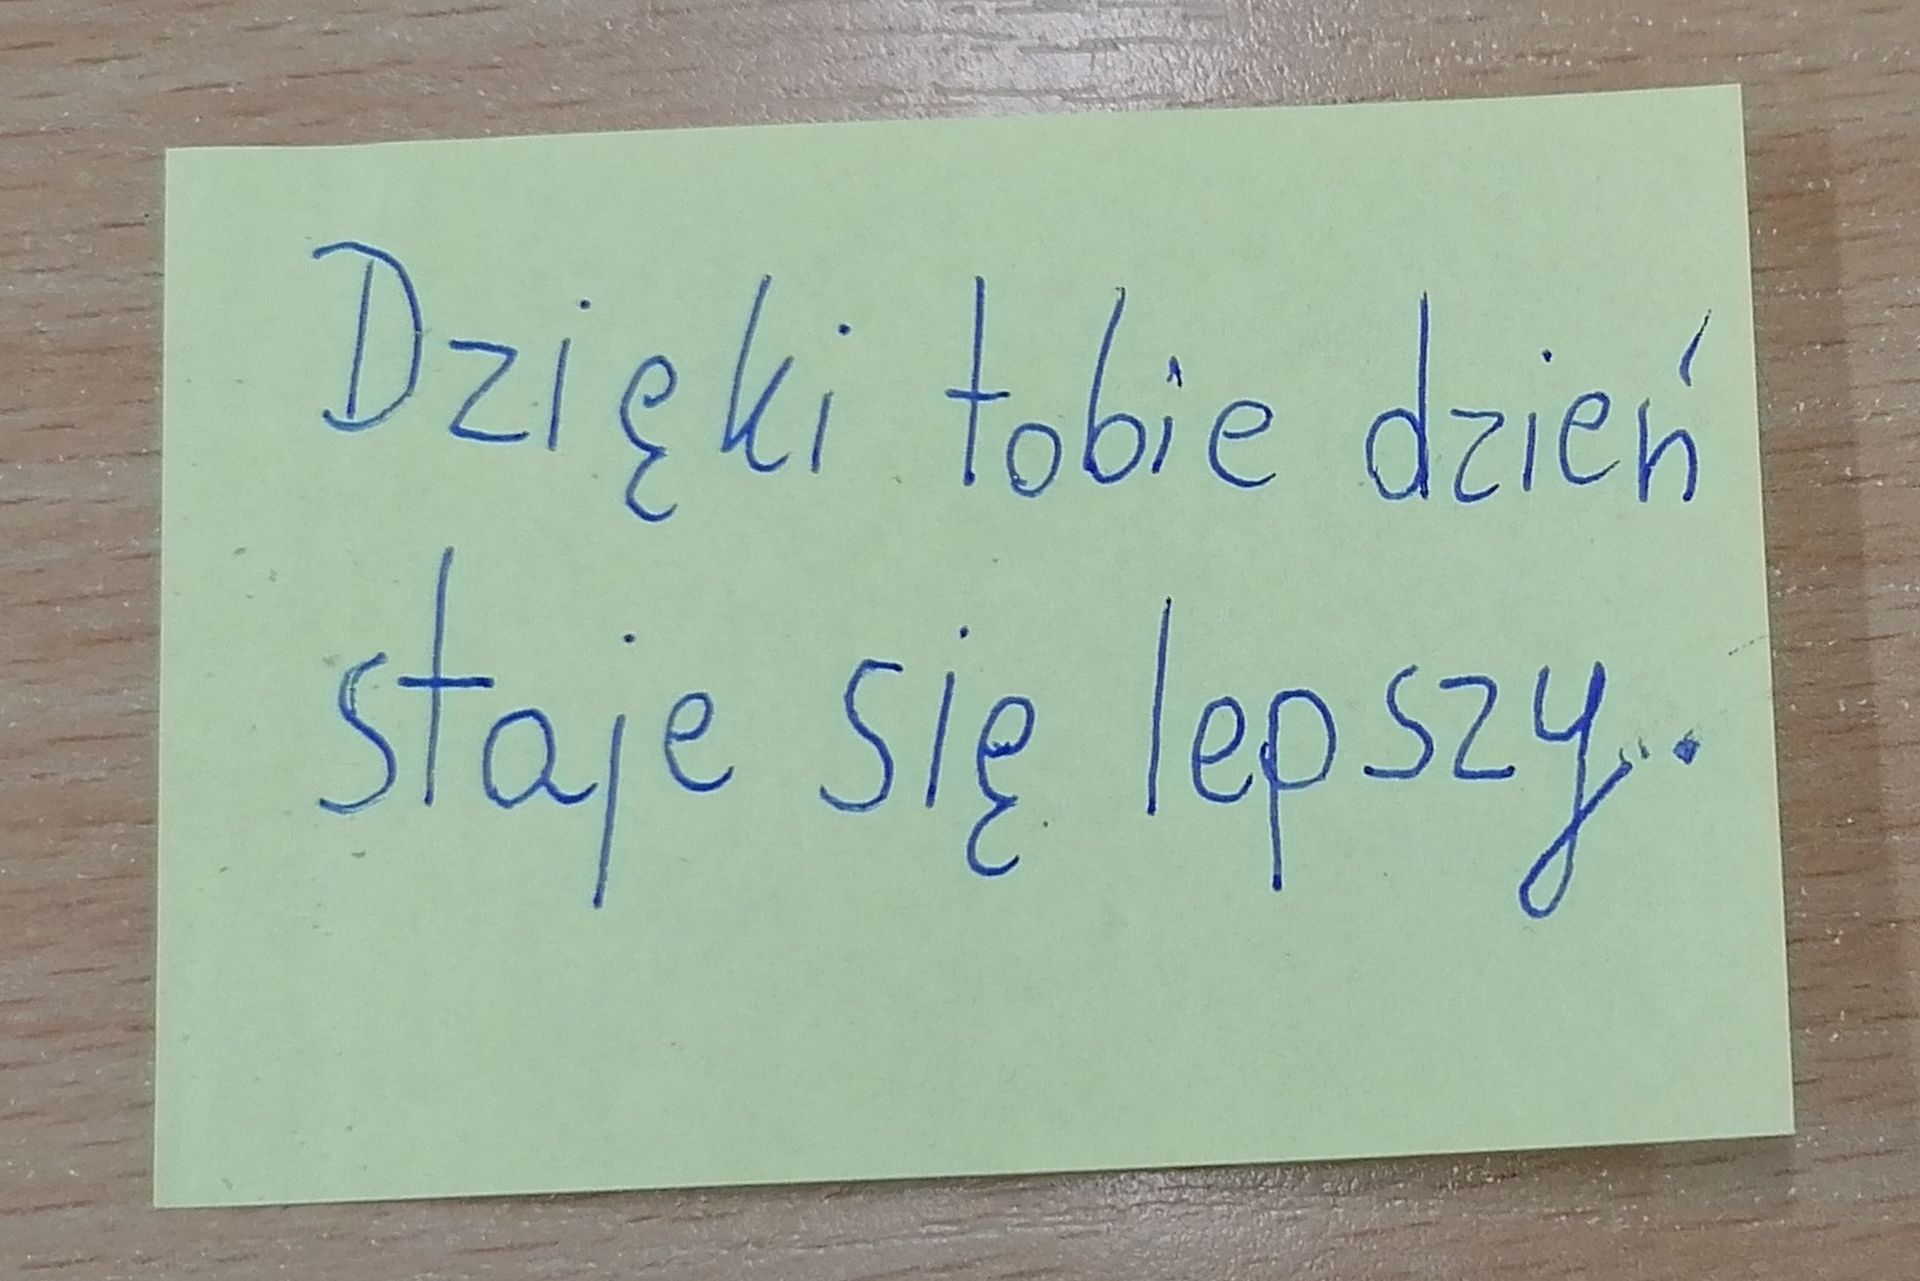 Dzięki tobie dzień
staje się lepszy..